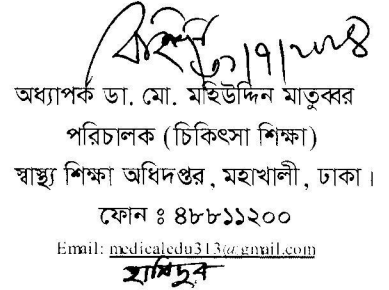 ০১/৭/২০২৪
অধ্যাপক ডা. মো. মহিউদ্দিন মাতুব্বর
পরিচালক (চিকিৎসা শিক্ষা)
স্বাস্থ্য শিক্ষা অধিদপ্তর, মহাখালী, ঢাকা।
ফোন ঃ ৪৮৮১১২০০
Email: medicaledu313@gmail.com